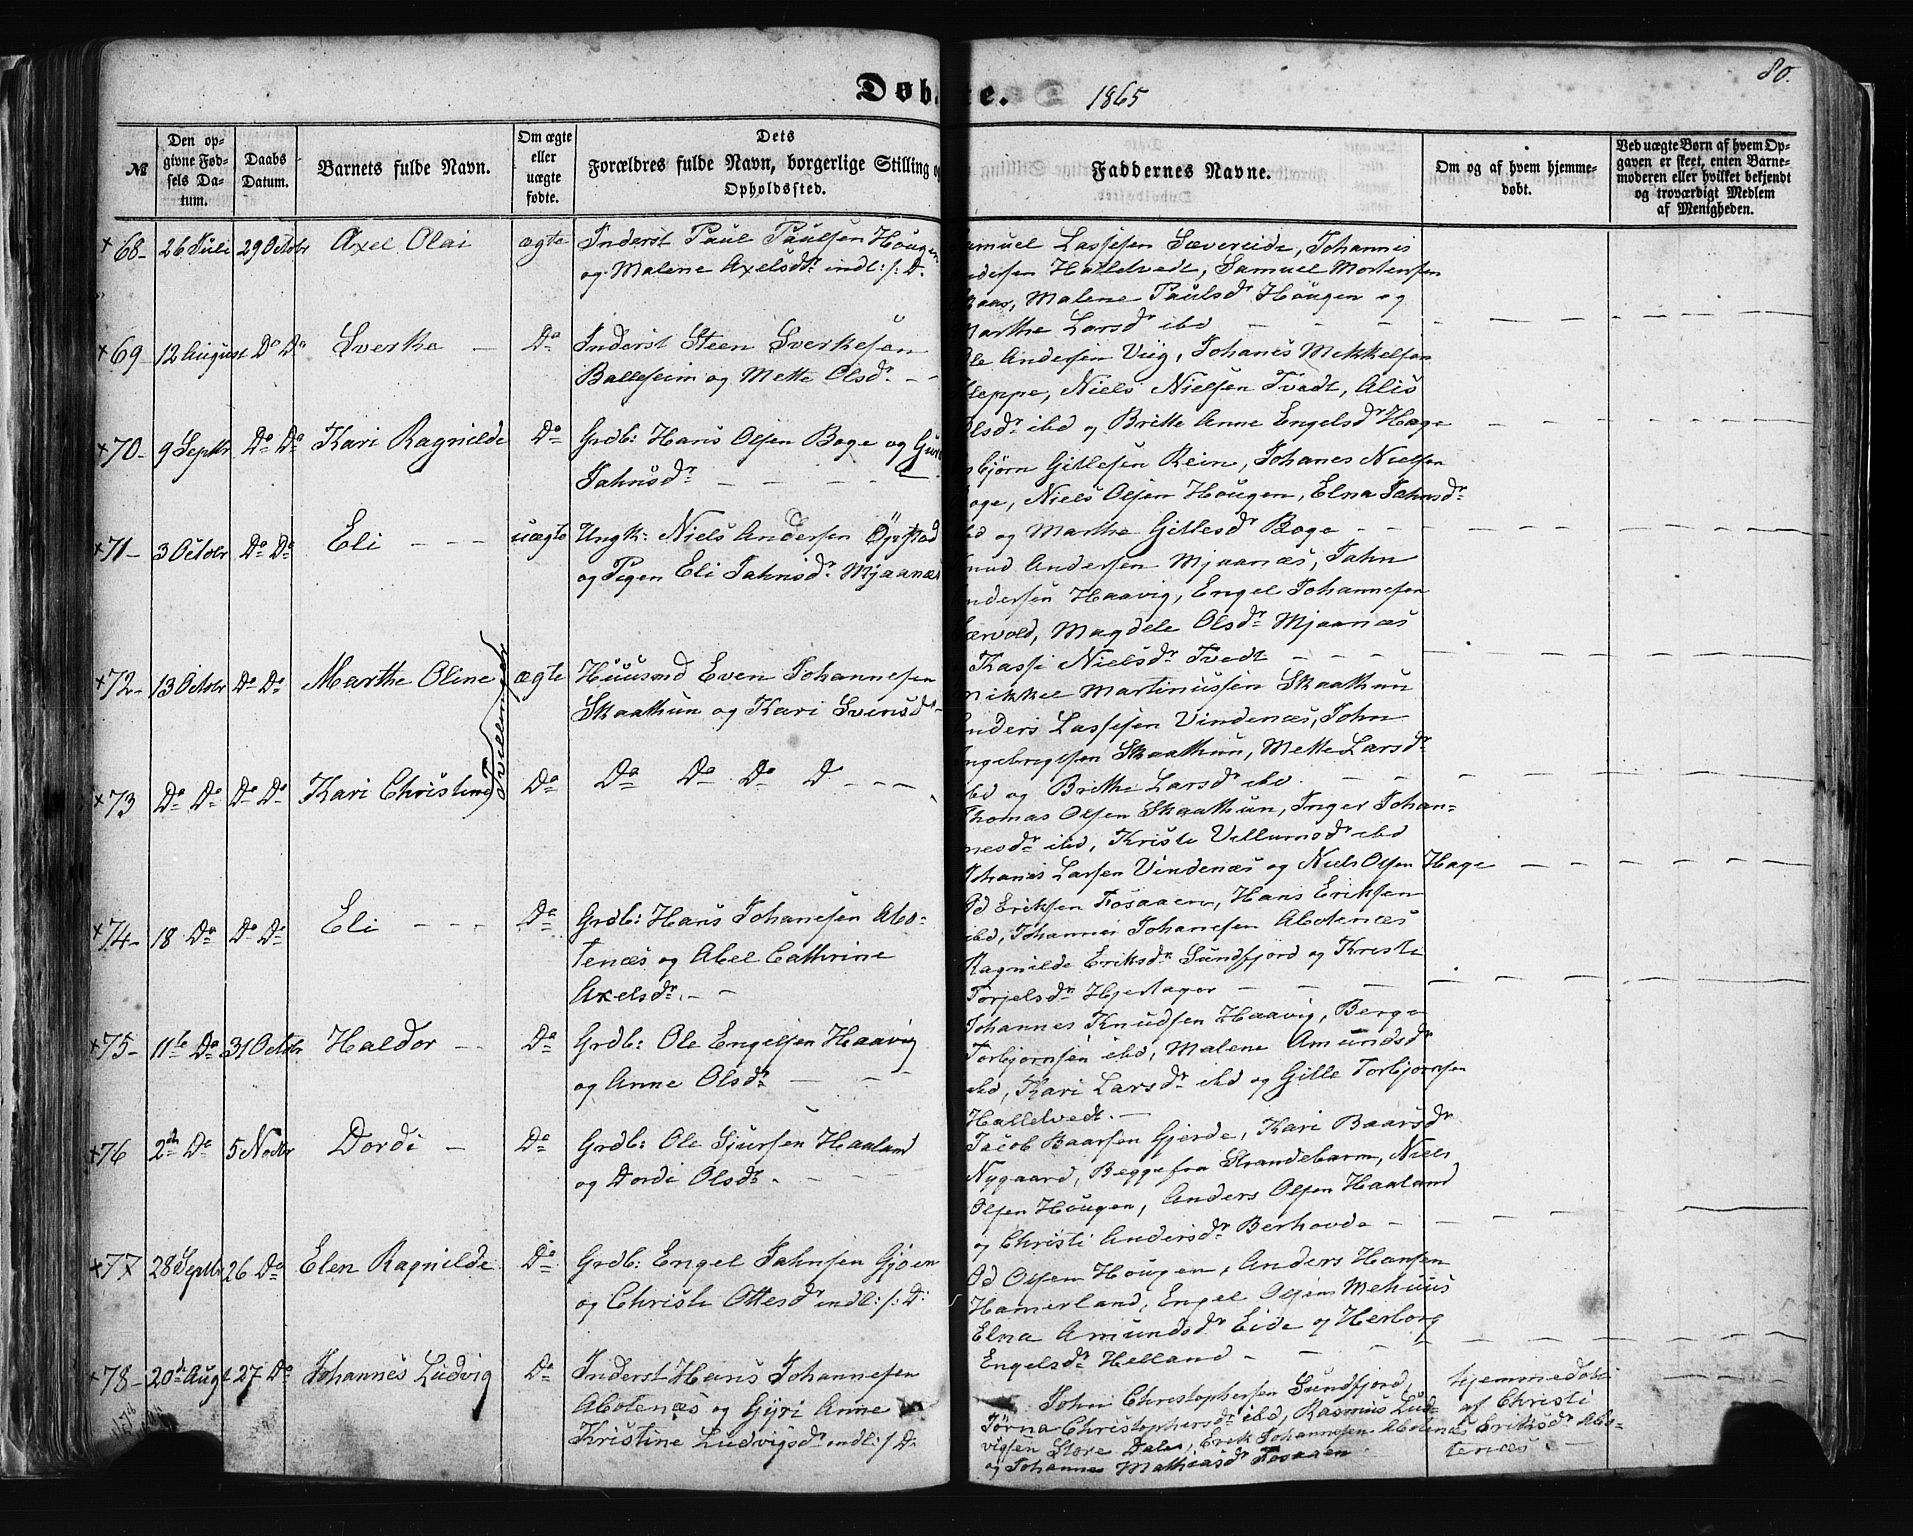 Døb
e.
1865
80.
№
Den op-
givne Fød-
sels Da-
tum.
Daabs
Datum.
Barnets fulde Navn.
Om ægte
eller
uægte
fødte.
Dets
Forældres fulde Navn, borgerlige Stilling o
Opholdssted.
Faddernes Navne.
Om og af hvem hjemme-
døbt.
Ved uægte Børn af hvem Op-
gaven er skeet, enten Barne-
moderen eller hvilket bekjendt
og troværdigt Medlem
af Menigheden.
+68- 26 Juli 29 Octobr Axel Olai ægte Inderst Paul Paulsen Hougen
og Malene Axelsdr indl: /: Do
amuel Lassesen Sævereide, Johannis
ndersen Halletvedt, Samuel Mortensen
kaar, Malene Paulsdr Hougen og
Marthe Larsdr ibd
+69- 12 August Do Do Sverke Do Inderst Steen Sverkesen
Balleseim og Mette Olsdr
le Andersen Viig, Johanes Mikkelsen
kleppe, Niels Nielsen Tvedt, Alis
lsdr ibd og Britte Anne Engelsdr Hage
+70- 9 Septbr Do Do Kari Ragnilde Do Grdb: Hans Olsen Boge og Guro
Jahnsdr
sbjörn Gillesen Rein, Johanes Nielsen
oge, Niels Olsen Hougen, Elna Jahnsdr
ibd og Marthe Gillesdr Boge
+71- 3 Octobr Do Do Eli uægte Ungk: Niels Andersen Öystad
og Pigen Eli Jahnsdr Mjaanæs
nud Andersen Mjaanæs, Jahn
ndersen Haavig, Engel Johannesen
ærvold, Magdele Olsdr Mjaanæs
Kassi Nielsdr Tvedt
+72- 13 Octobr Do Do Marthe Oline ægte Huusmd Even Johannesen
Skaathun og Kari Svensdr
Tvillinger
Mikkel Martinussen Skaathun
Anders Lassesen Vindenæs, John
Ingebrigtsen Skaathun, Mette Larsdr
ibd og Britte Larsdr ibd
+73 Do Do Do Do Kari Christine Do Do Do Do D
Thomas Olsen Skaathun, Inger Johan-
nesdr ibd, Kristi Villumsdr ibd
Johanes Larsen Vindenæs og Niels Olsen Hage
+74- 18 Do Do Do Eli Do Grdb: Hans Johanesen Abo-
tenæs og Abel Cathrine
Axelsdr
Od Eriksen Fosaaen, Hans Eriksen
ibd, Johannes Johanesen Abotenæs
Ragnilde Eriksdr Sundfjord og Kristi
Torjelsdr Hjertager
+75- 11te Do 31 Octobr Haldor Do Grdb: Ole Engelsen Haavig
og Anne Olsdr
Johannes Knudsen Haavig, Berge
Torbjornsen ibd, Malene Amundsdr
ibd, Kari Larsdr ibd og Gille Torbjornsen
Halletvedt.
+76 2de Do 5 Novbr Dordi Do Grdb: Ole Sjursen Haaland
og Dordi Olsdr
Jacob Baarsen Gjerde, Kari Baarsdr
Nygaard, Begge fra Strandebarm, Niels
Olsen Hougen, Anders Olsen Haaland
og Christi Andersdr Berhovde
+77 28 Septbr 26 Do Elen Ragnilde Do Grdb: Engel Jahnsen Gjøen
og Christi Ottesdr indl: /: D:
Od Olsen Hougen, Anders Hansen
Hamerland, Engel Olsen Mehuus
Elna Amundsdr Eide og Herborg
Engelsdr Helland
+78- 20de Augt 27 Do Johannes Ludvig Do Inderst Hans Johannesen
Abotenæs og Gyri Anne
Kristine Ludvigsdr indl: /: Do
John Christophersen Sundfjord,
Jörna Christophersdr ibd, Rasmus Lud-
vigsen Store Dale, Erik Johannesen Abotenæs
og Johanne Mathiasdr Fosaaen
hjemmedöbt
af Christi
Eriksdr Abo-
tenæs